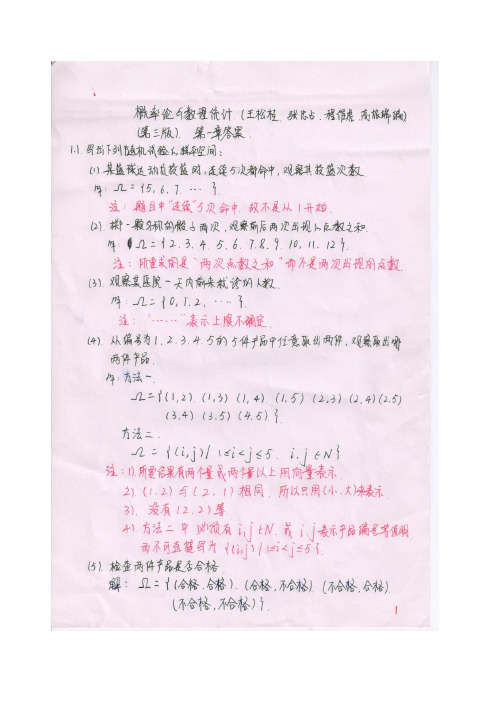 概率论与数理统计 (王松桂 张忠占 程维虎 高旅端编)
(第三版). 第一章答案.
1.1. 写出下列随机试验的样本空间:
(1). 某篮球运动员投篮时, 连续5次都命中, 观察其投篮次数.
解: Ω={5, 6, 7, … }.
注: 题目中"连续"5次命中. 故不是从1开始.
(2). 掷一颗匀称的骰子两次, 观察前后两次出现的点数之和.
解: Ω={2. 3. 4. 5. 6. 7. 8. 9. 10. 11. 12}.
注: 所要求的是"两次点数之和"而不是两次出现的点数.
(3). 观察某医院一天内前来就诊的人数.
解: Ω={0, 1, 2, ……}.
注: "……"表示上限不确定.
(4). 从编号为1. 2. 3. 4. 5的5件产品中任意取出两件, 观察取出哪
两件产品.
解: 方法一.
Ω={(1,2) (1,3) (1,4) (1,5) (2,3) (2,4) (2,5)
(3,4) (3,5) (4,5)}.
方法二.
Ω={(i,j)| 1≤i<j≤5. i,j∈N}
注: 1). 所要结果有两个量或两个量以上用向量表示.
2). (1,2)与(2,1)相同. 所以只用(小,大)来表示.
3). 没有(2,2)等.
4). 方法二中必须有i,j∈N. 或i,j表示产品编号等说明
而不可直接写为{(i,j)|1≤i<j≤5}.
(5). 检查两件产品是否合格.
解: Ω={(合格,合格). (合格,不合格) (不合格,合格).
(不合格,不合格)}.
1